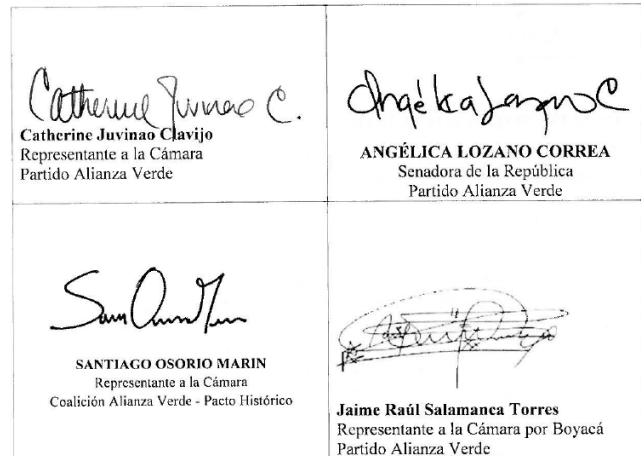 Catherine Juvinao C.
Catherine Juvinao Clavijo
Representante a la Cámara
Partido Alianza Verde
Angélica Lozano C
ANGÉLICA LOZANO CORREA
Senadora de la República
Partido Alianza Verde
SANTIAGO OSORIO MARIN
Representante a la Cámara
Coalición Alianza Verde - Pacto Histórico
Jaime Raúl Salamanca Torres
Representante a la Cámara por Boyacá
Partido Alianza Verde